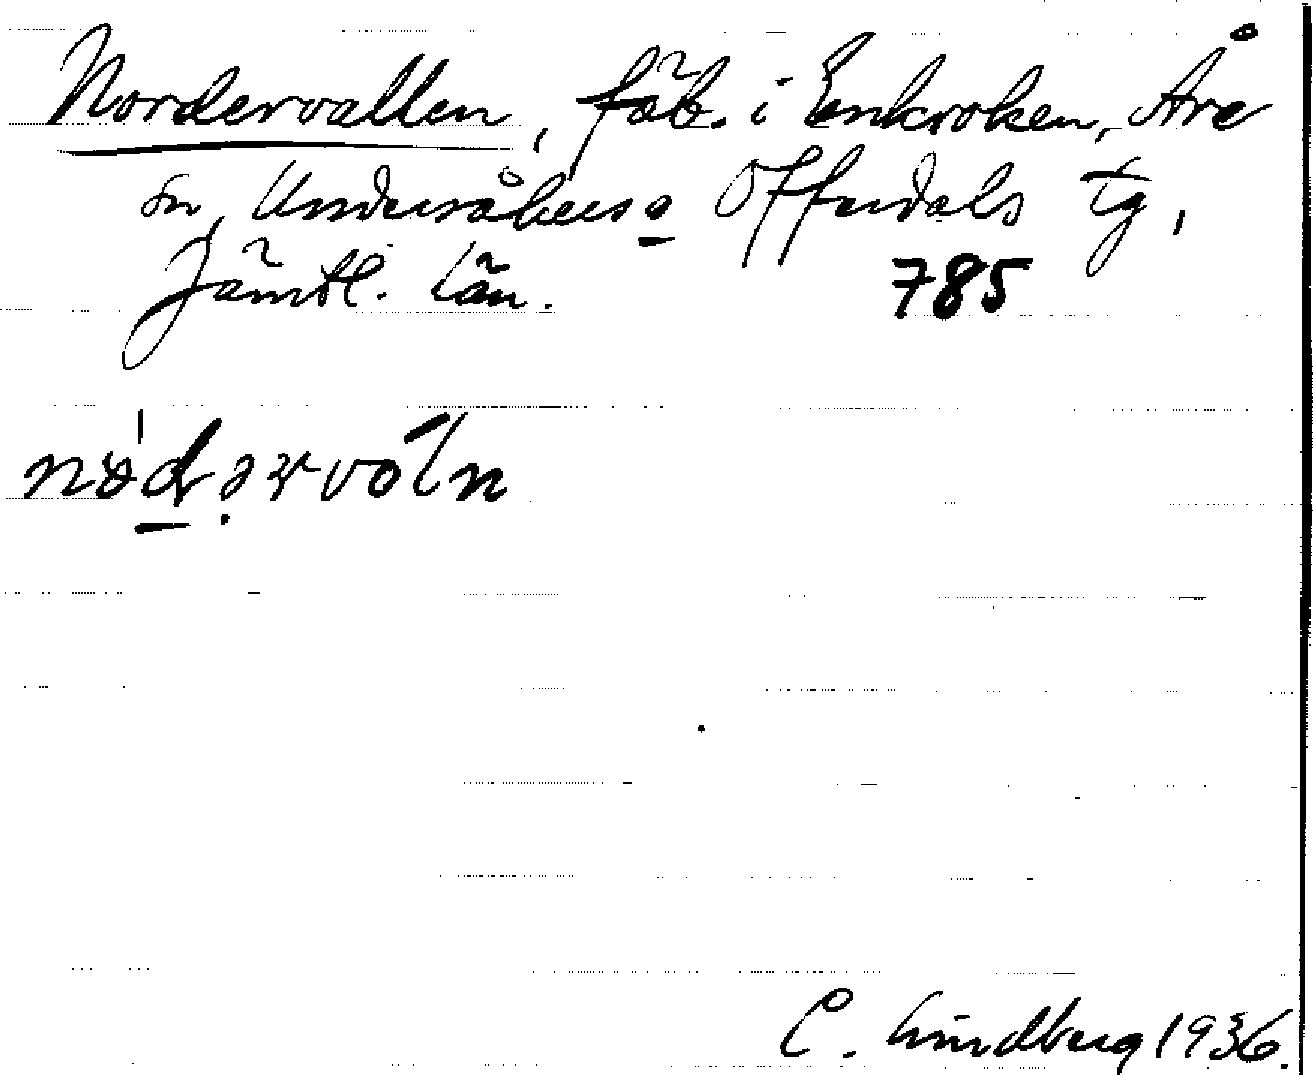 Nordervallen, fäb. i Enkroken, Åre
sn, Undersåkers o Offerdals tg,
Jämtl. län. 785
C. Lindberg 1936.